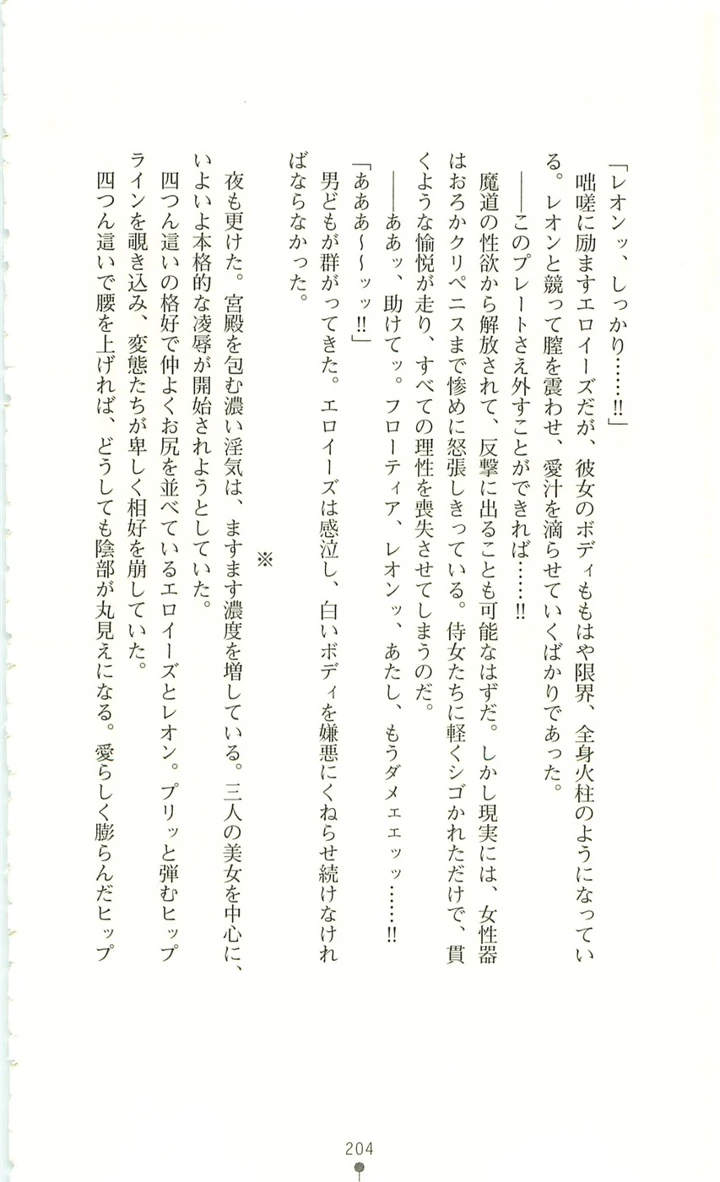 「レオンッ、しっかり……!!」
　咄嗟に励ますエロイーズだが、彼女のボディももはや限界、全身火柱のようになってい
る。レオンと競って膣を震わせ、愛汁を滴らせていくばかりであった。
　――このプレートさえ外すことができれば……!!
　魔道の性欲から解放されて、反撃に出ることも可能なはずだ。しかし現実には、女性器
はおろかクリペニスまで惨めに怒張しきっている。侍女たちに軽くシゴかれただけで、貫
くような愉悦が走り、すべての理性を喪失させてしまうのだ。
　――ああッ、助けてッ。フローティア、レオンッ、あたし、もうダメェェッッ……!!
「あああ〜〜ッッ!!」
　男どもが群がってきた。エロイーズは感泣し、白いボディを嫌悪にくねらせ続けなけれ
ばならなかった。
※
　夜も更けた。宮殿を包む濃い淫気は、ますます濃度を増している。三人の美女を中心に、
いよいよ本格的な凌辱が開始されようとしていた。
　四つん這いの格好で仲よくお尻を並べているエロイーズとレオン。プリッと弾むヒップ
ラインを覗き込み、変態たちが卑しく相好を崩していた。
　四つん這いで腰を上げれば、どうしても陰部が丸見えになる。愛らしく膨らんだヒップ
204